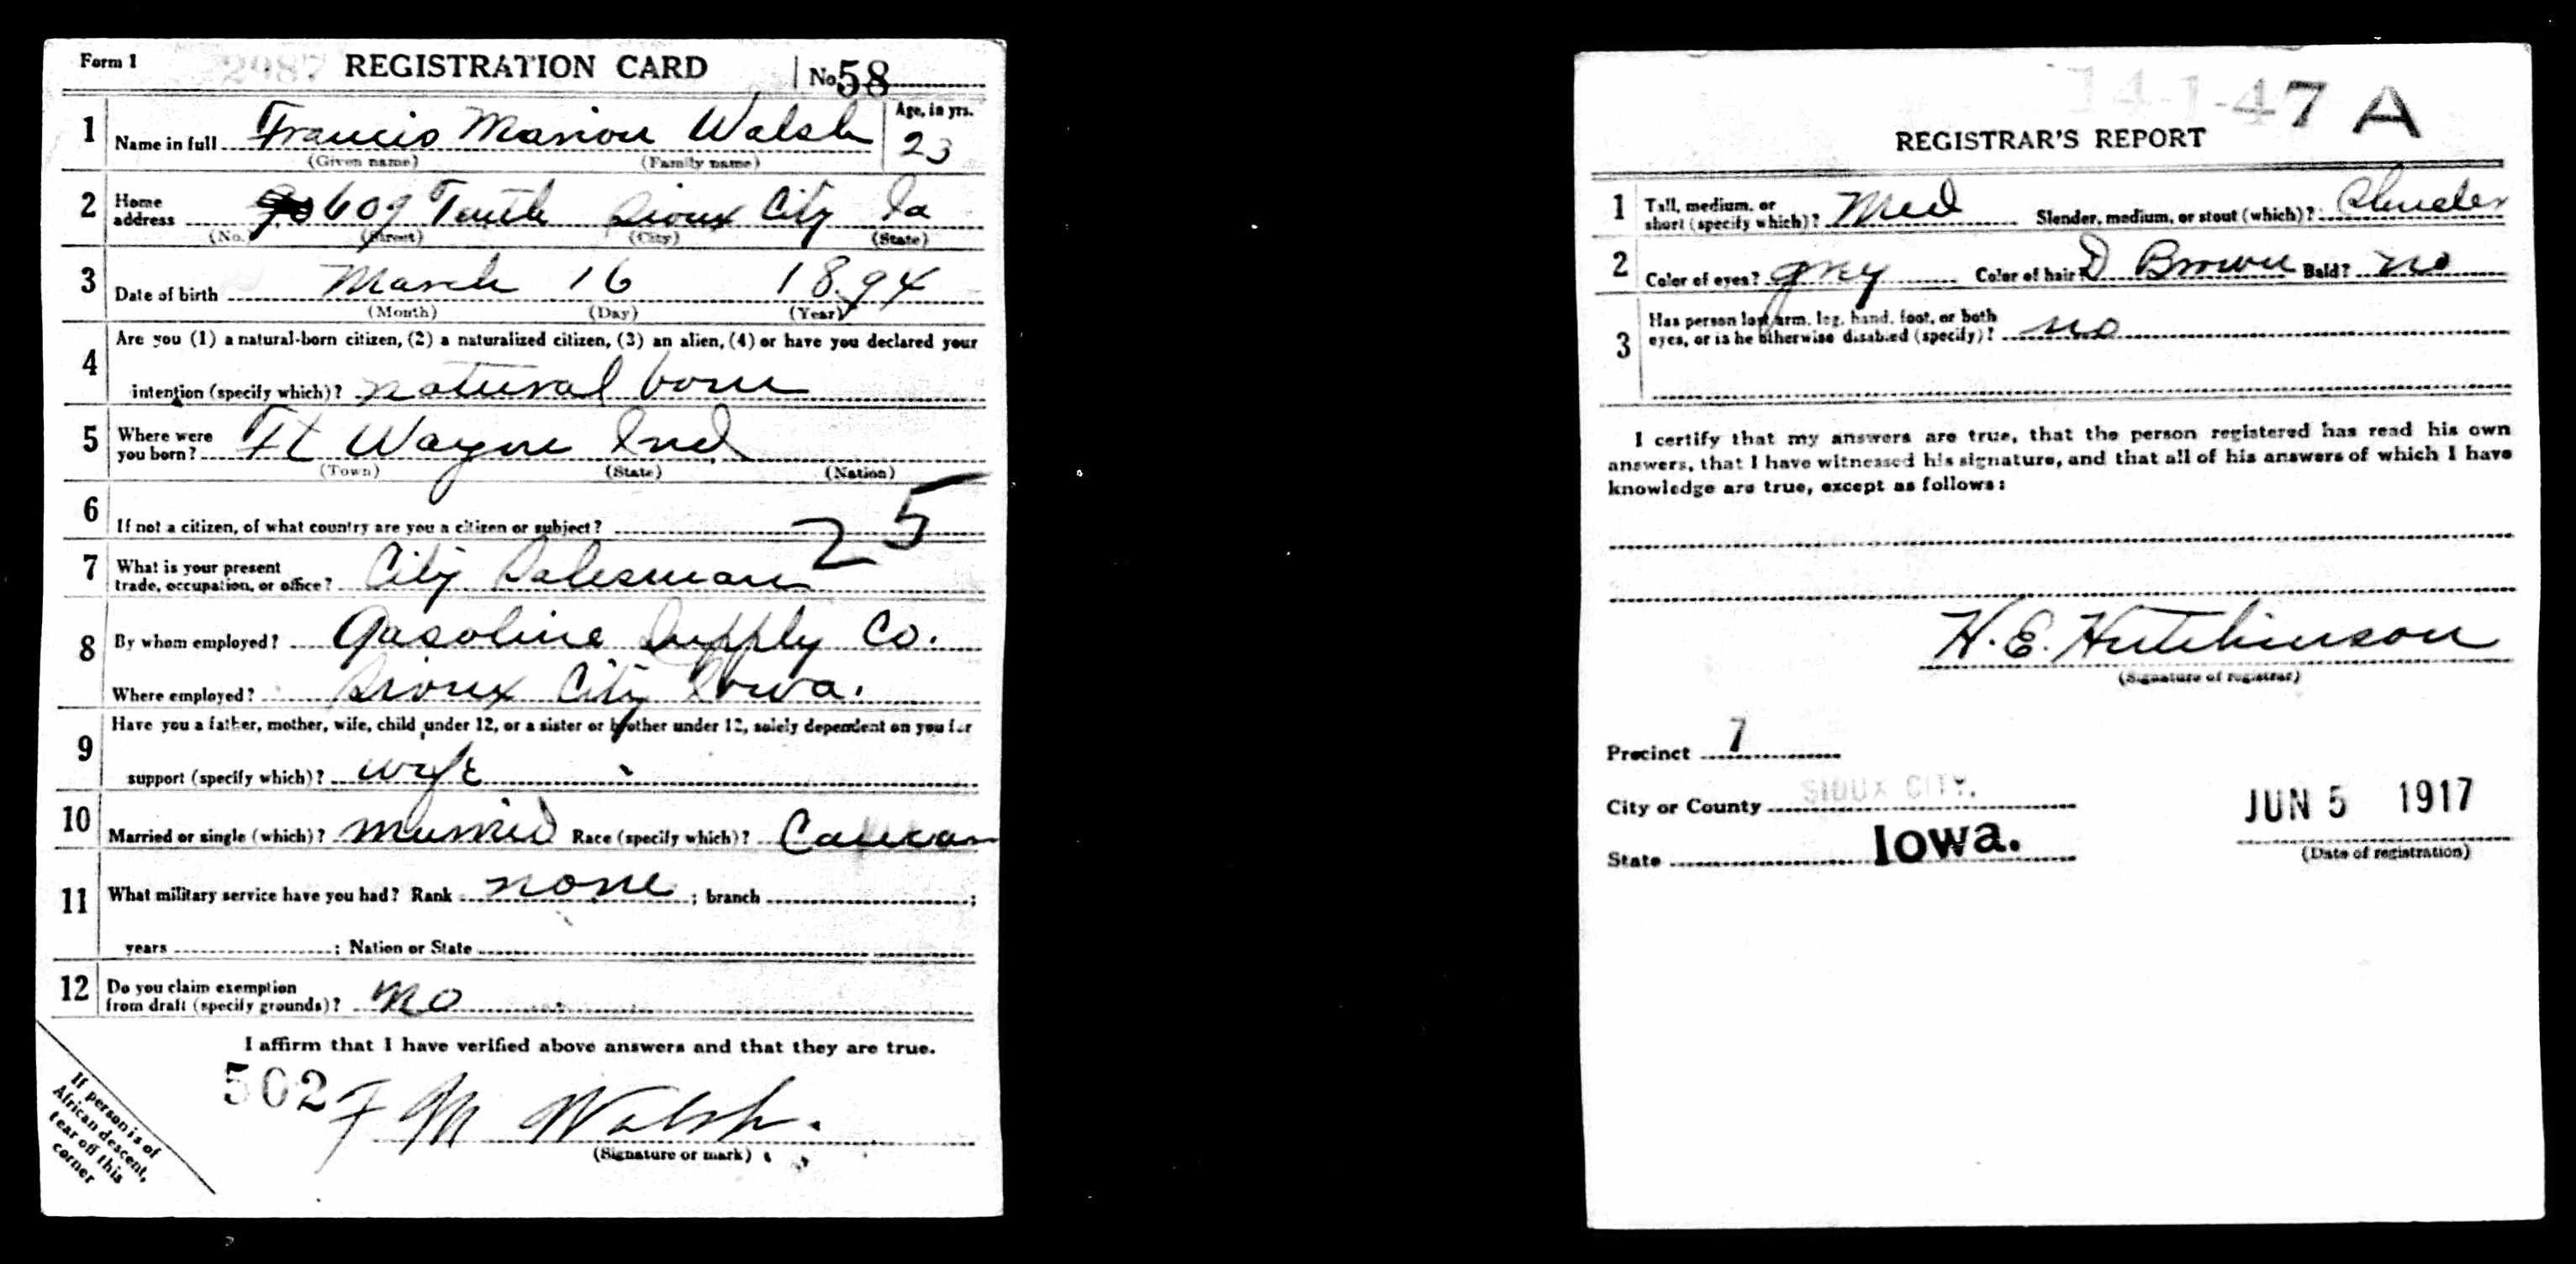 Form 1 2987 REGISTRATION CARD No. 58
1 Name in full Francis Marion Walsh Age, in yrs. 23
(Given name) (Family name)
2 Home address 609 Tenth Sioux City Ia
(No.) (Street) (City) (State)
3 Date of birth March 16 1894
(Month) (Day) (Year)
4 Are you (1) a natural-born citizen, (2) a naturalized citizen, (3) an alien, (4) or have you declared your
intention (specify which)? natural born
5 Where were you born? Ft Wayne Ind
(Town) (State) (Nation)
6 If not a citizen, of what country are you a citizen or subject?
25
7 What is your present trade, occupation, or office? City Salesman
8 By whom employed? Gasoline Supply Co.
Where employed? Sioux City Iowa.
9 Have you a father, mother, wife, child under 12, or a sister or brother under 12, solely dependent on you for
support (specify which)? wife
10 Married or single (which)? Married Race (specify which)? Caucan
11 What military service have you had? Rank none ; branch ;
years ; Nation or State
12 Do you claim exemption from draft (specify grounds)? No
I affirm that I have verified above answers and that they are true.
502 F M Walsh.
(Signature or mark)
If person is of
African descent,
tear off this
corner
14-1-47 A
REGISTRAR'S REPORT
1 Tall, medium, or short (specify which)? Med Slender, medium, or stout (which)? Slender
2 Color of eyes? grey Color of hair? D Brown Bald? no
3 Has person lost arm, leg, hand, foot, or both
eyes, or is he otherwise disabled (specify)? no
I certify that my answers are true, that the person registered has read his own
answers, that I have witnessed his signature, and that all of his answers of which I have
knowledge are true, except as follows:
H. E. Hutchinson
(Signature of registrar)
Precinct 7
City or County SIOUX CITY.
State Iowa.
JUN 5 1917
(Date of registration)